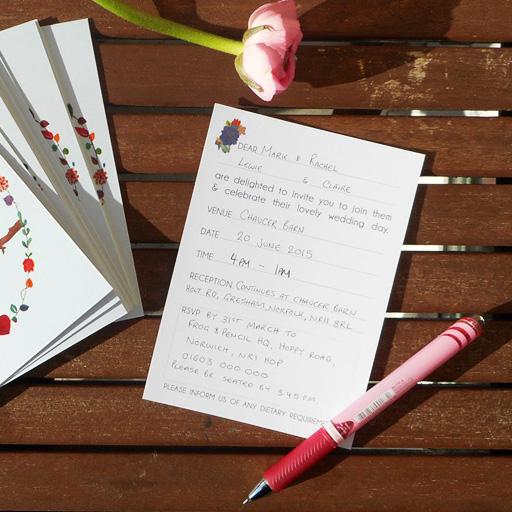 DEAR MARK & RACHEL
LEWIE & CLAIRE
are delighted to invite you to join them
& celebrate their lovely wedding day.
VENUE CHAUCER BARN
DATE 20 JUNE 2015
TIME 4PM - 1AM
RECEPTION CONTINUES AT CHAUCER BARN
HOLT RD, GRESHAM, NORFOLK, NR11 8RL
RSVP BY 31ST MARCH TO
FROG & PENCIL HQ, HOPPY ROAD,
NORWICH, NR1 HOP
01603 000 000
PLEASE BE SEATED BY 3.45PM.
PLEASE INFORM US OF ANY DIETARY REQUIREME